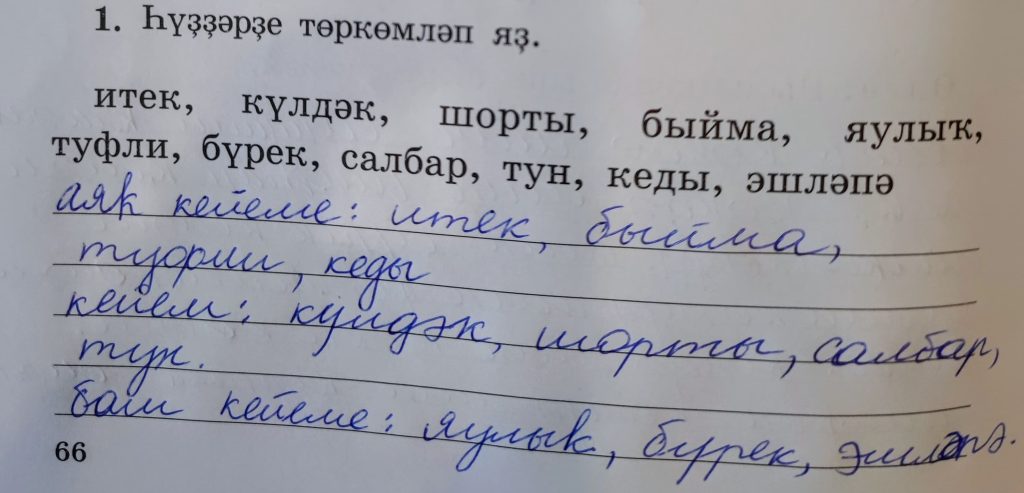 1. Һүҙҙәрҙе төркөмләп яҙ.
итек, күлдәк, шорты, быйма, яулыҡ,
туфли, бүрек, салбар, тун, кеды, эшләпә
аяк кейеме: итек, быйма,
туфли, кеды
кейем: күлдәк, шорты, салбар,
тун.
баш кейеме: яулык, бүрек, эшләпә.
66